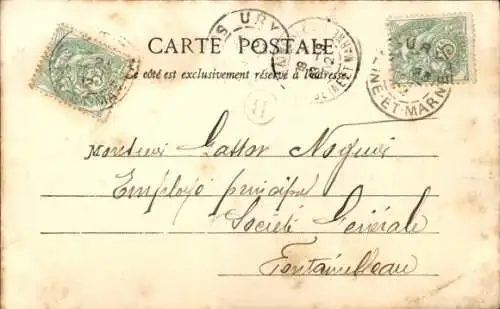 URY
CARTE POSTALE
Ce côté est exclusivement réservé à l'adresse.
URY
SEINE-ET-MARNE
Monsieur Gaston
Employé principal
Société Générale
Fontainebleau